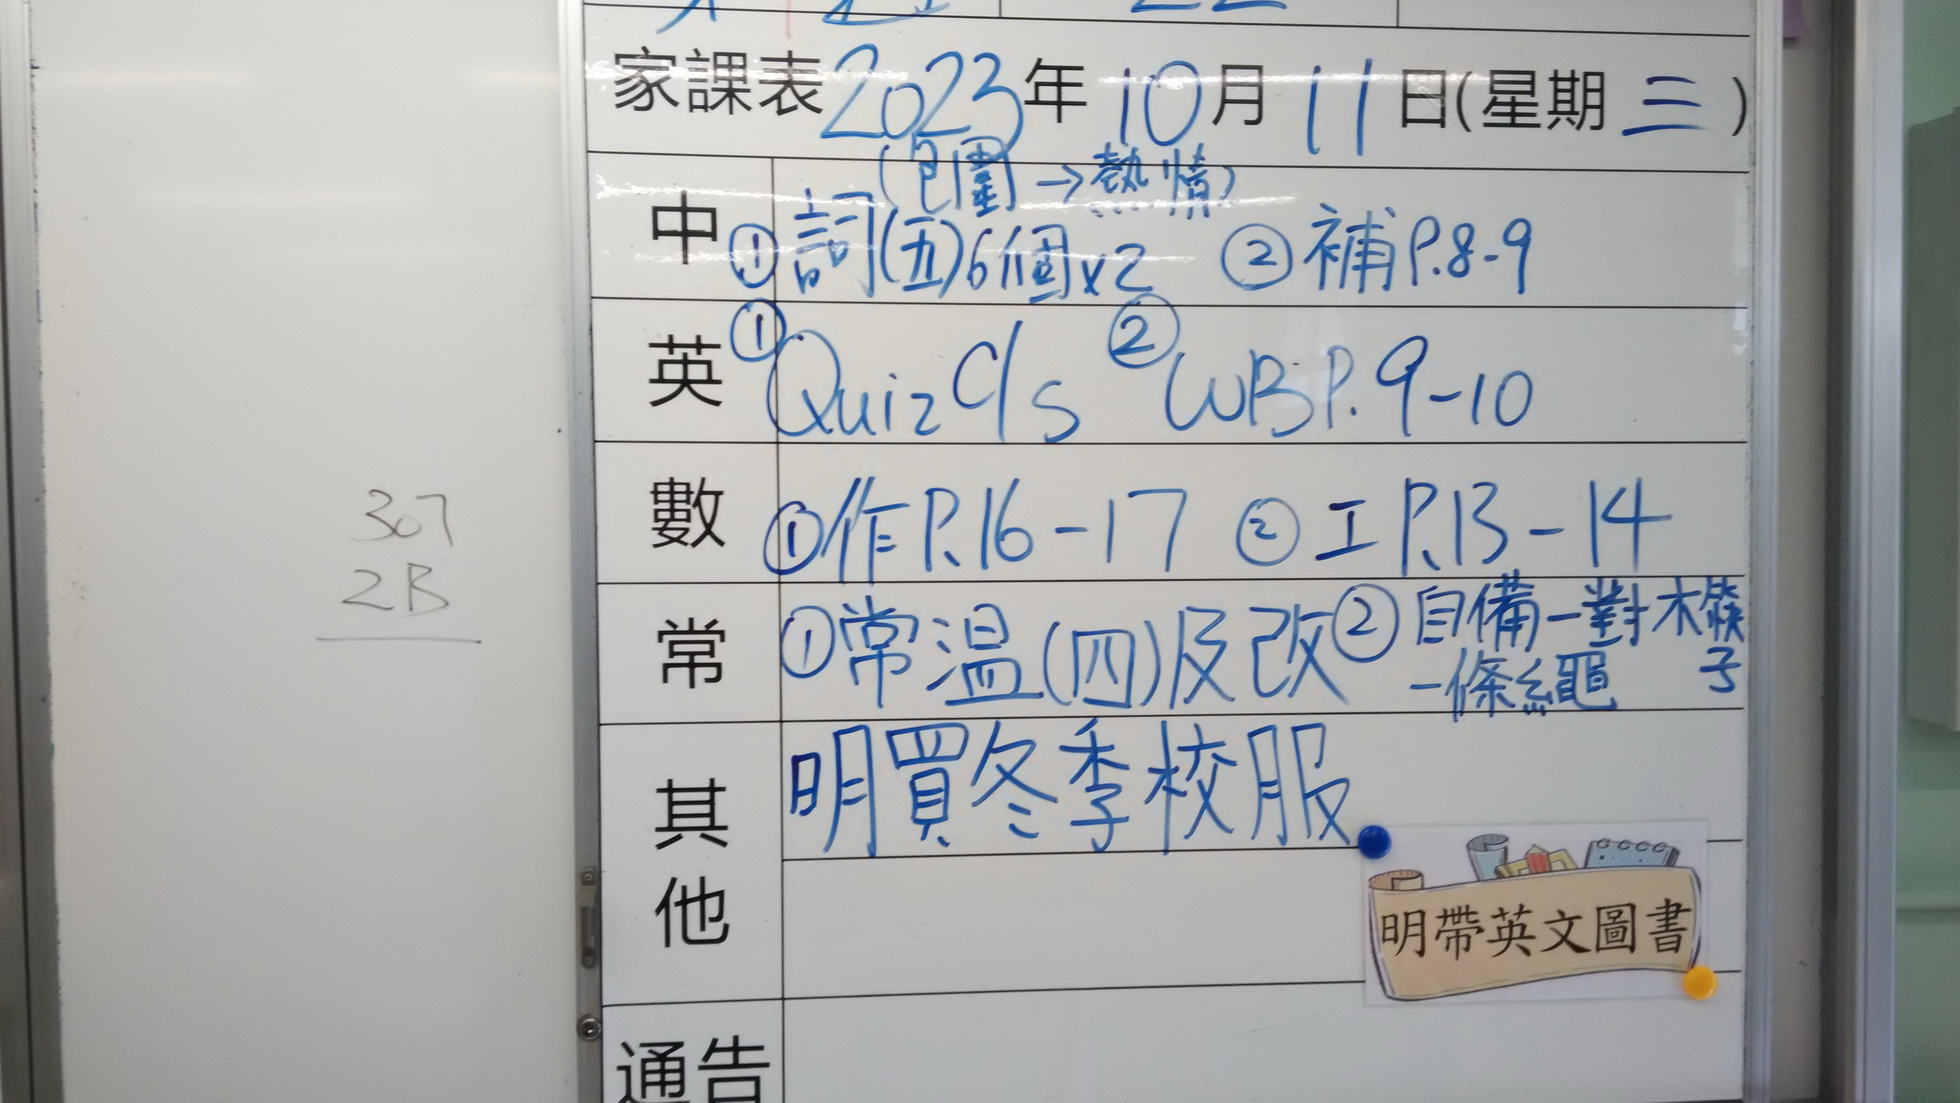 家課表2023年10月11日(星期三)
(包圍→熱情)
中 ①詞(五)6個x2 ②補P.8-9
英 ①Quiz C/S ②WB P.9-10
數 ①作P.16-17 ②工P.13-14
常 ①常溫(四)及改 ②自備一對木筷子
一條繩
其他 明買冬季校服
明帶英文圖書
通告
307
2B